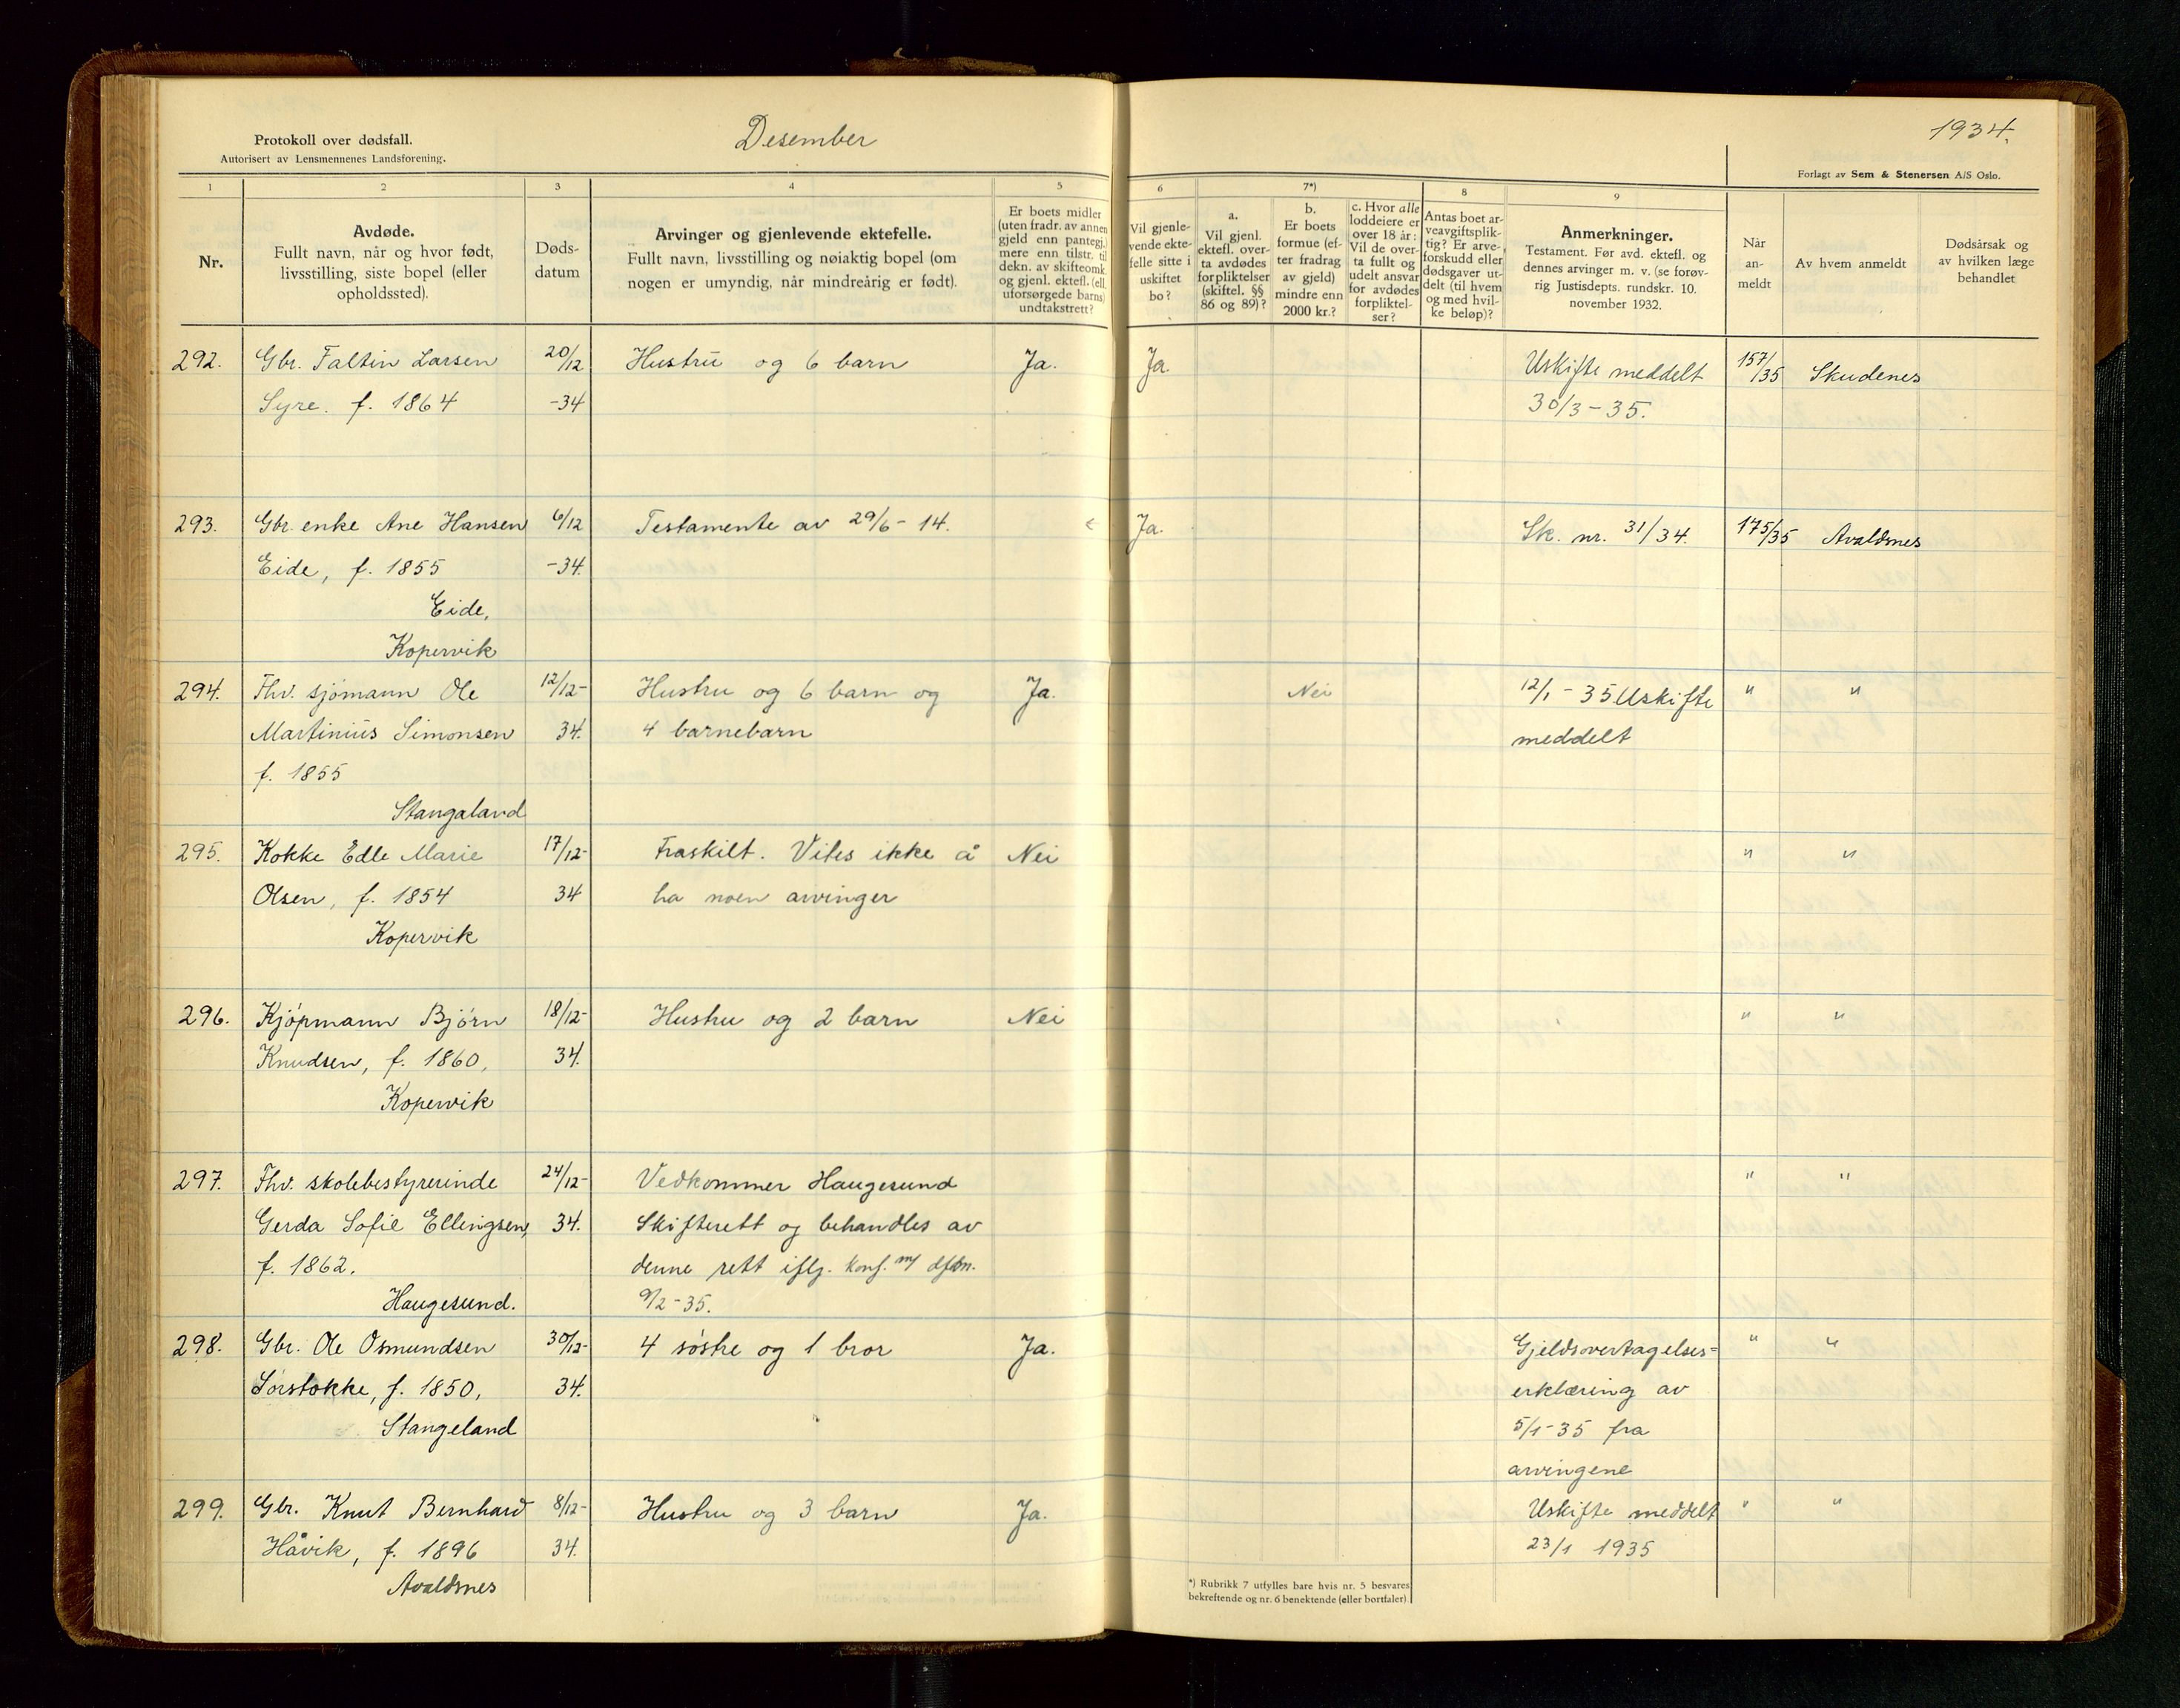 Protokoll over dødsfall.
Autorisert av Lensmennenes Landsforening.
Desember
1934.
Forlagt av Sem & Stenersen A/S Oslo.
1
2
3
4
5
6
7*)
8
9
Nr.
Avdøde.
Fullt navn, når og hvor født,
livsstilling, siste bopel (eller
opholdssted).
Døds-
datum
Arvinger og gjenlevende ektefelle.
Fullt navn, livsstilling og nøiaktig bopel (om
nogen er umyndig, når mindreårig er født).
Er boets midler
(uten fradr. av annen
gjeld enn pantegj.)
mere enn tilstr. til
dekn. av skifteomk.
og gjenl. ektef. (ell.
uforsørgede barns)
undtakstrett?
Vil gjenle-
vende ekte-
felle sitte i
uskiftet
bo?
a.
Vil gjenl.
ektefl. over-
ta avdødes
forpliktelser
(skiftel. §§
86 og 89)?
b.
Er boets
formue (ef-
ter fradrag
av gjeld)
mindre enn
2000 kr.?
c. Hvor alle
loddeiere er
over 18 år:
Vil de over-
ta fullt og
udelt ansvar
for avdødes
forpliktel-
ser?
Antas boet ar-
veavgiftsplik-
tig? Er arve-
forskudd eller
dødsgaver ut-
delt (til hvem
og med hvil-
ke beløp)?
Anmerkninger.
Testament. Før avd. ektefl. og
dennes arvinger m. v. (se forøv-
rig Justisdepts. rundskr. 10.
november 1932.
Når
an-
meldt
Av hvem anmeldt
Dødsårsak og
av hvilken læge
behandlet
292. Gbr. Faltin Larsen 20/12 Hustru og 6 barn Ja. Ja. Uskifte meddelt 157/35 Skudenes
Syre. f. 1864 -34 30/3-35.
293. Gbr. enke Ane Hansen 6/12 Testamente av 29/6-14. Ja. Sk. nr. 31/34. 175/35 Avaldsnes
Eide, f. 1855 -34.
Eide,
Kopervik
294. Fhv. sjømann Ole 12/12- Hustru og 6 barn og Ja. Nei 12/1-35 Uskifte " "
Martinius Simonsen 34. 4 barnebarn meddelt
f. 1855
Stangaland
295. Kokke Edle Marie 17/12- Fraskilt. Vites ikke å Nei " "
Olsen, f. 1854 34 ha noen arvinger
Kopervik
296. Kjøpmann Bjørn 18/12- Hustru og 2 barn Nei " "
Knudsen, f. 1860, 34.
Kopervik
297. Fhv. skolebestyrerinde 24/12- Vedkommer Haugesund " "
Gerda Sofie Ellingsen, 34. Skifterett og behandles av
f. 1862. denne rett iflg. konf. m/
Haugesund. 9/2-35.
298. Gbr. Ole Osmundsen 30/12- 4 søstre og 1 bror Ja. Gjeldsovertagelses= " "
Sørstokke, f. 1850, 34. erklæring av
Stangeland 5/1-35 fra
arvingene
299. Gbr. Knut Bernhard 8/12- Hustru og 3 barn Ja. Uskifte meddelt " "
Håvik, f. 1896 34. 23/1 1935
Avaldsnes
*) Rubrikk 7 utfylles bare hvis nr. 5 besvares
bekreftende og nr. 6 benektende (eller bortfaller)